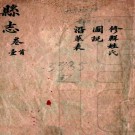 縣志
卷首
修輯姓氏
圖説
沿革表